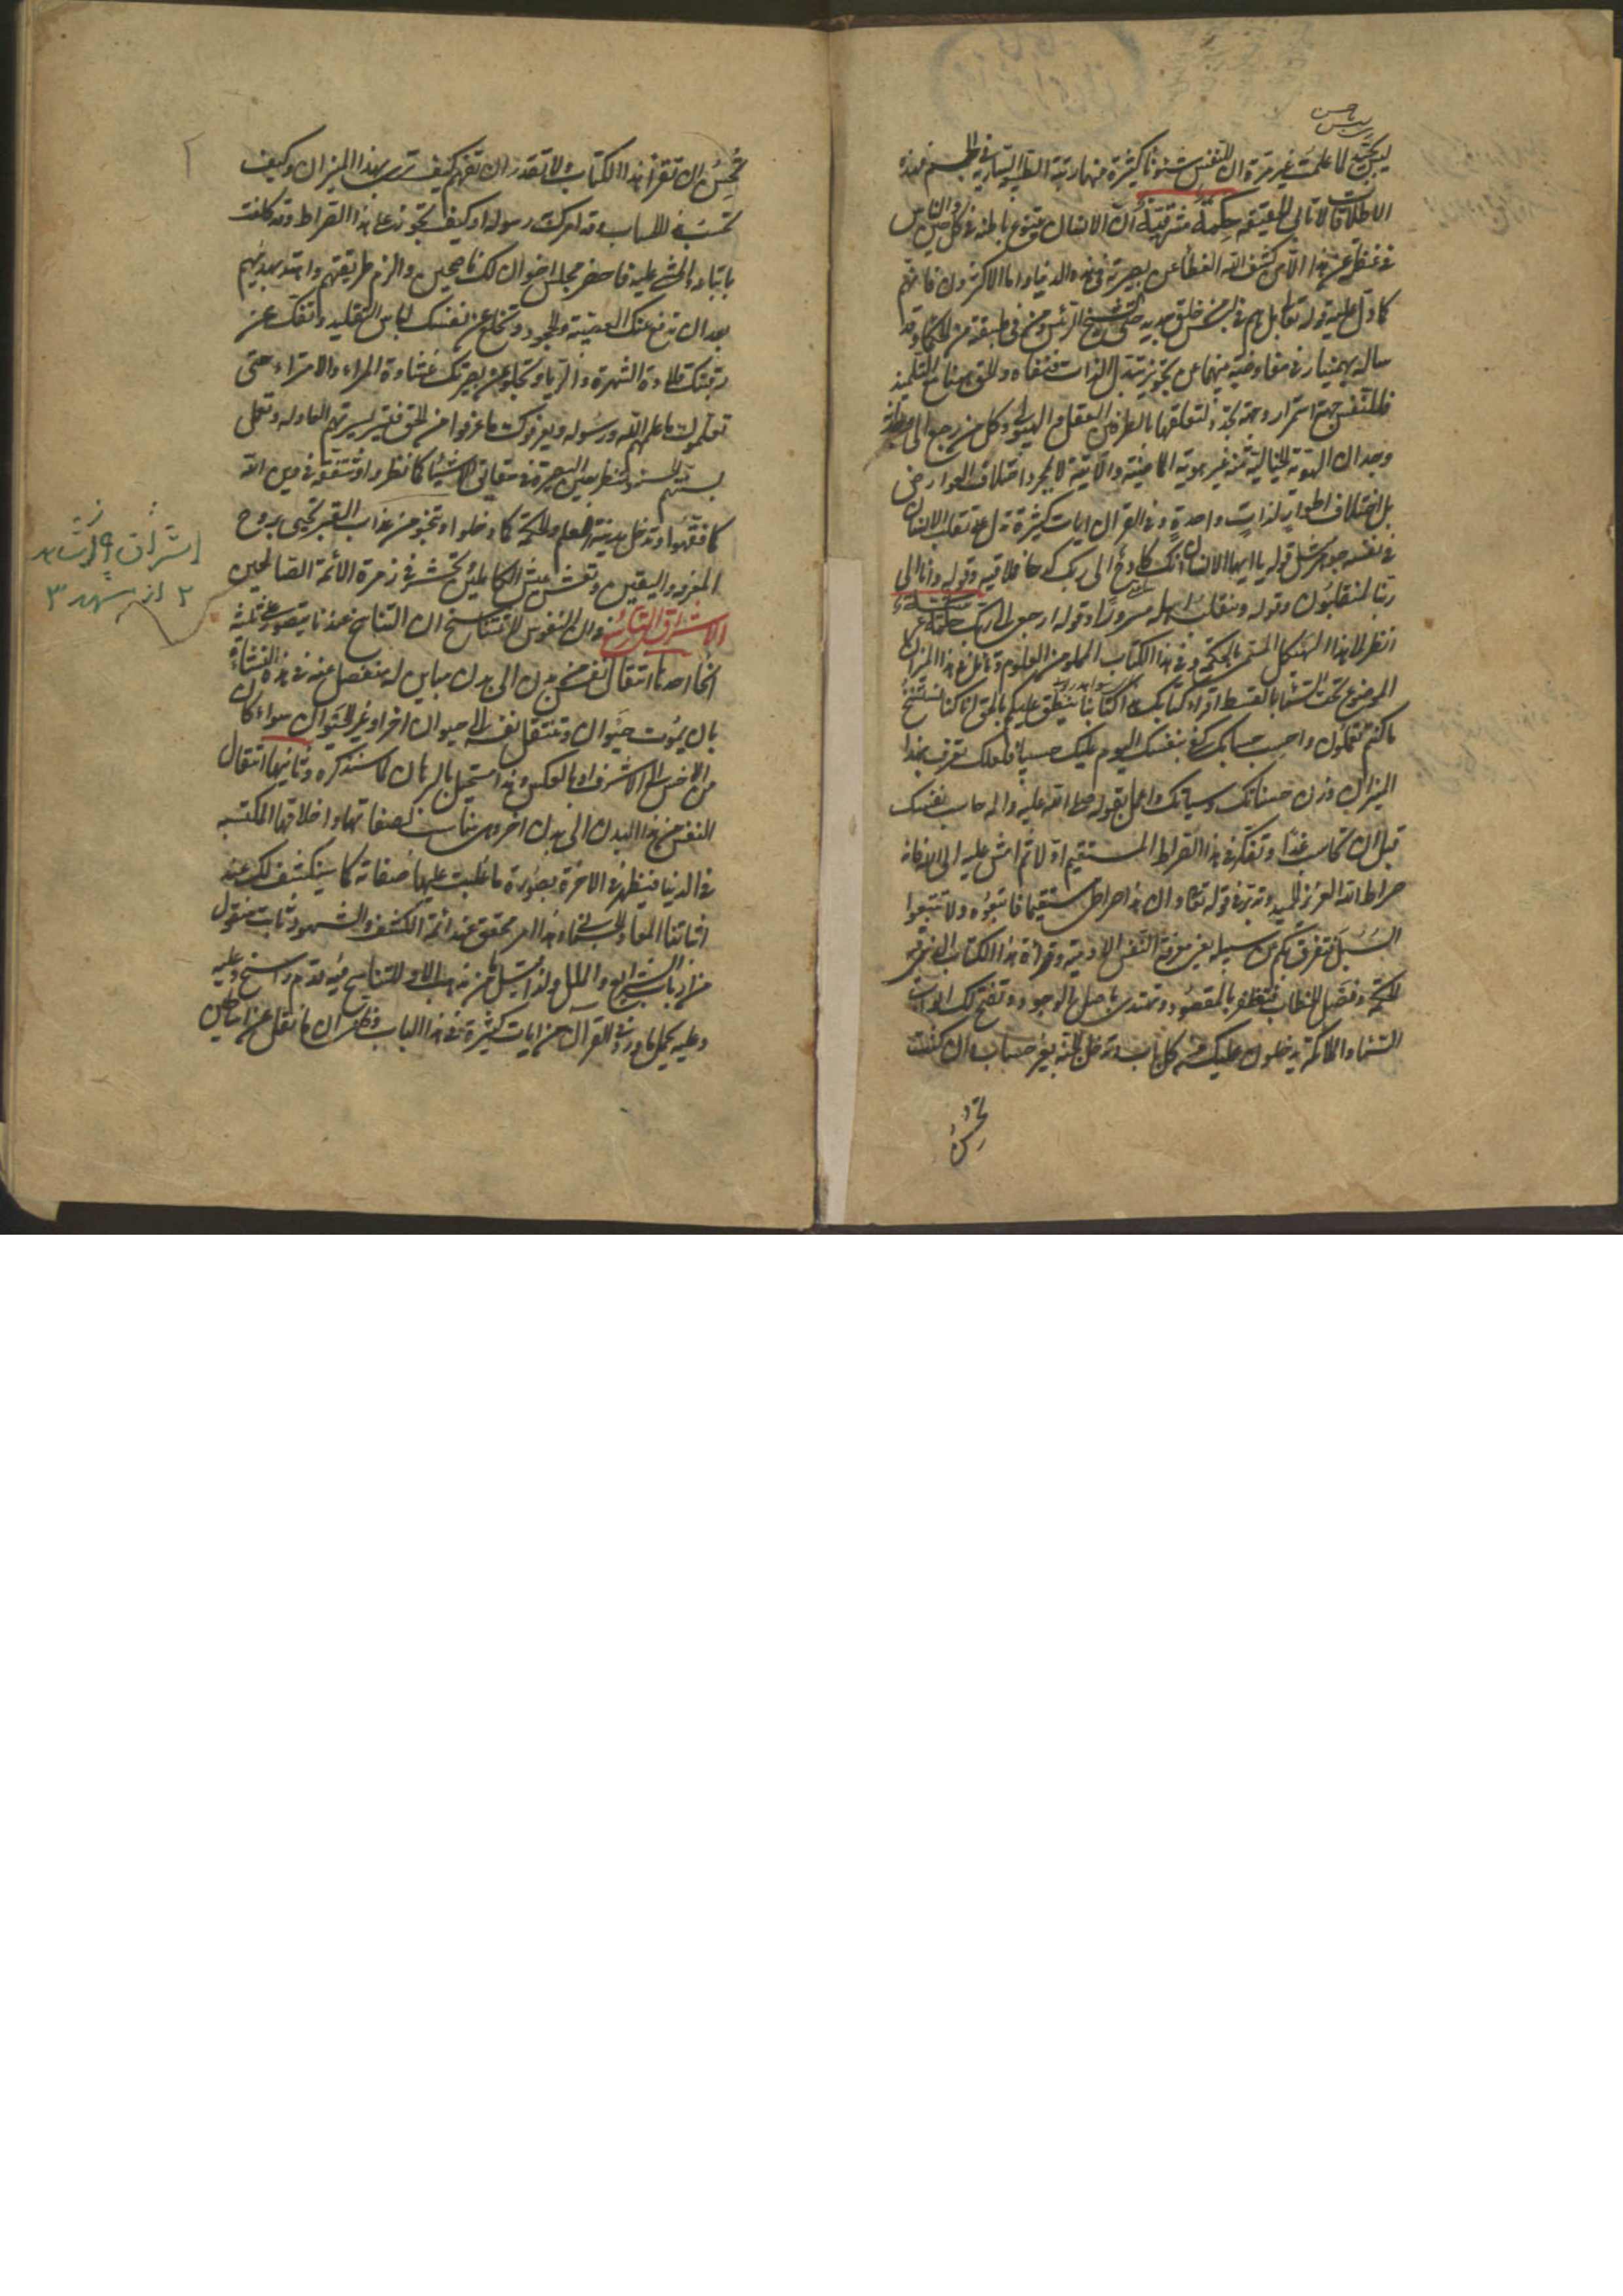 ليس بآخر
لما علمت غير مرة ان للنفس شئونا كثيرة منها رتبة الطبيعة السارية في الجسم فهذه
الاطلاقات لا تأبى الحقيقة حكمة مشرقية ان الانسان يتنوع باطنه في كل حين والناس
في غفلة عن هذا الا من كشف الله الغطاء عن بصيرته في هذه الدنيا واما الاكثرون فانهم
كما دل عليه قوله تعالى بل هم في لبس من خلق جديد حتى الشيخ الرئيس ومن في طبقته من الحكماء وقد
ساله بهمنيار في مفاوضته منهما عن تجويز تبدل الذات فنفاه والحق معنا مع التلميذ
فللنفس جهة استمرار وجهة تجدد لتعلقها بالطرفين العقل والهيولى وكل من رجع الى
وجد ان الهوية الحالية منه غير هويته الماضية والآتية لا لمجرد اختلاف العوارض
بل اختلاف اطوار لذات واحدة وفي القرآن ايات كثيرة تدل على تقلب الانسان
في نفسه جوهره مثل قوله يا ايها الانسان انك كادح الى ربك كدحا فملاقيه وقوله وانا الى
ربنا لمنقلبون وقوله وينقلب الى اهله مسرورا وقوله ارجعي الى ربك حكمة
انظر الى هذا الهيكل المتمم بالحكمة وفي هذا الكتاب المملو من العلوم وتأمل في هذا الميزان
الموضوع تحت السماء بالقسط اقراء كتابك هذا كتابنا ينطق عليكم بالحق انا كنا نستنسخ
ما كنتم تعملون واحسب حسابك كفى بنفسك اليوم عليك حسيبا فلعلك تعرف بهذا
الميزان وزن حسناتك وسيئاتك واعمل بقوله صلى الله عليه واله حاسب نفسك
قبل ان تحاسب غدا وتفكر في هذا الصراط المستقيم اولا ثم امش عليه
صراط الله العزيز الحميد وتدبر في قوله تعالى وان هذا صراطي مستقيما فاتبعوه ولا تتبعوا
السبل فتفرق بكم عن سبيله يعني معرفة النفس الادمية وقراءة هذا الكتاب الذي فيه
الحكمة وفصل الخطاب فتظفر بالمقصود وتهتدي باصل الوجود وتفتح لك ابواب
السماء والملائكة يدخلون عليك من كل باب وتدخل الجنة بغير حساب ان كنت
تحسن
تحسن ان تقرأ هذا الكتاب ولا تقدر ان تفهم كيف ترى بهذا الميزان وكيف
تحسب هذا الحساب وقد امرك رسوله او كيف تجوز على هذا الصراط وقد كلفت
باتباعه والمشي عليه فاحضر مجلس اخوان لك ناصحين والزم طريقتهم واهتد بهديهم
بعد ان تدفع عنك العصبية والجحود وتخلع عن نفسك لباس التقليد وتفك عن
رقبتك قلادة الشهرة والريا وتجلو عن بصيرتك غشاوة المراء والامتراء حتى
تعلموك ما علمهم الله ورسوله ويعرفوك ما عرفوا من الحق فتسير بسيرتهم العادلة وتعمل
بسنتهم الحسنة وتنظر بعين البصيرة في حقايق الاشياء كما نظروا وتتفقه في دين الله
كما فقهوا وتدخل مدينة العلم والحكمة كما دخلوا وتنجو من عذاب القبر تحيى بروح
المعرفة واليقين وتعيش عيش الكاملين وتحشر في زمرة الأئمة الصالحين
الاشراق التاسع في ان النفوس لا تتناسخ ان التناسخ عندنا يتصور على ثلثة
انحاء احدها انتقال نفس من بدن الى بدن مباين له منفصل عنه في هذه النشأة
بان يموت حيوان وتنتقل نفسه الى حيوان اخر او غير الحيوان سواء كان
من الاخس الى الاشرف او بالعكس وهذا مستحيل بالبرهان كما سنذكره وثانيها انتقال
النفس من هذا البدن الى بدن اخروي مناسب لصفاتها واخلاقها المكتسبة
في الدنيا فيظهر في الآخرة بصورة ما غلبت عليها صفاته كما سينكشف لك عند
اثباتنا المعاد الجسماني وهذا امر محقق عند ائمة الكشف والشهود ثابت منقول
من ارباب الشرايع والملل ولذا قيل ما من مذهب الا وللتناسخ فيه قدم راسخ وعليه
وعليه يحمل ما ورد في القرآن من ايات كثيرة في هذا الباب وظني ان ما نقل عن اساطين
اشراق ٩ از شاهد
٢ از مشهد ٣